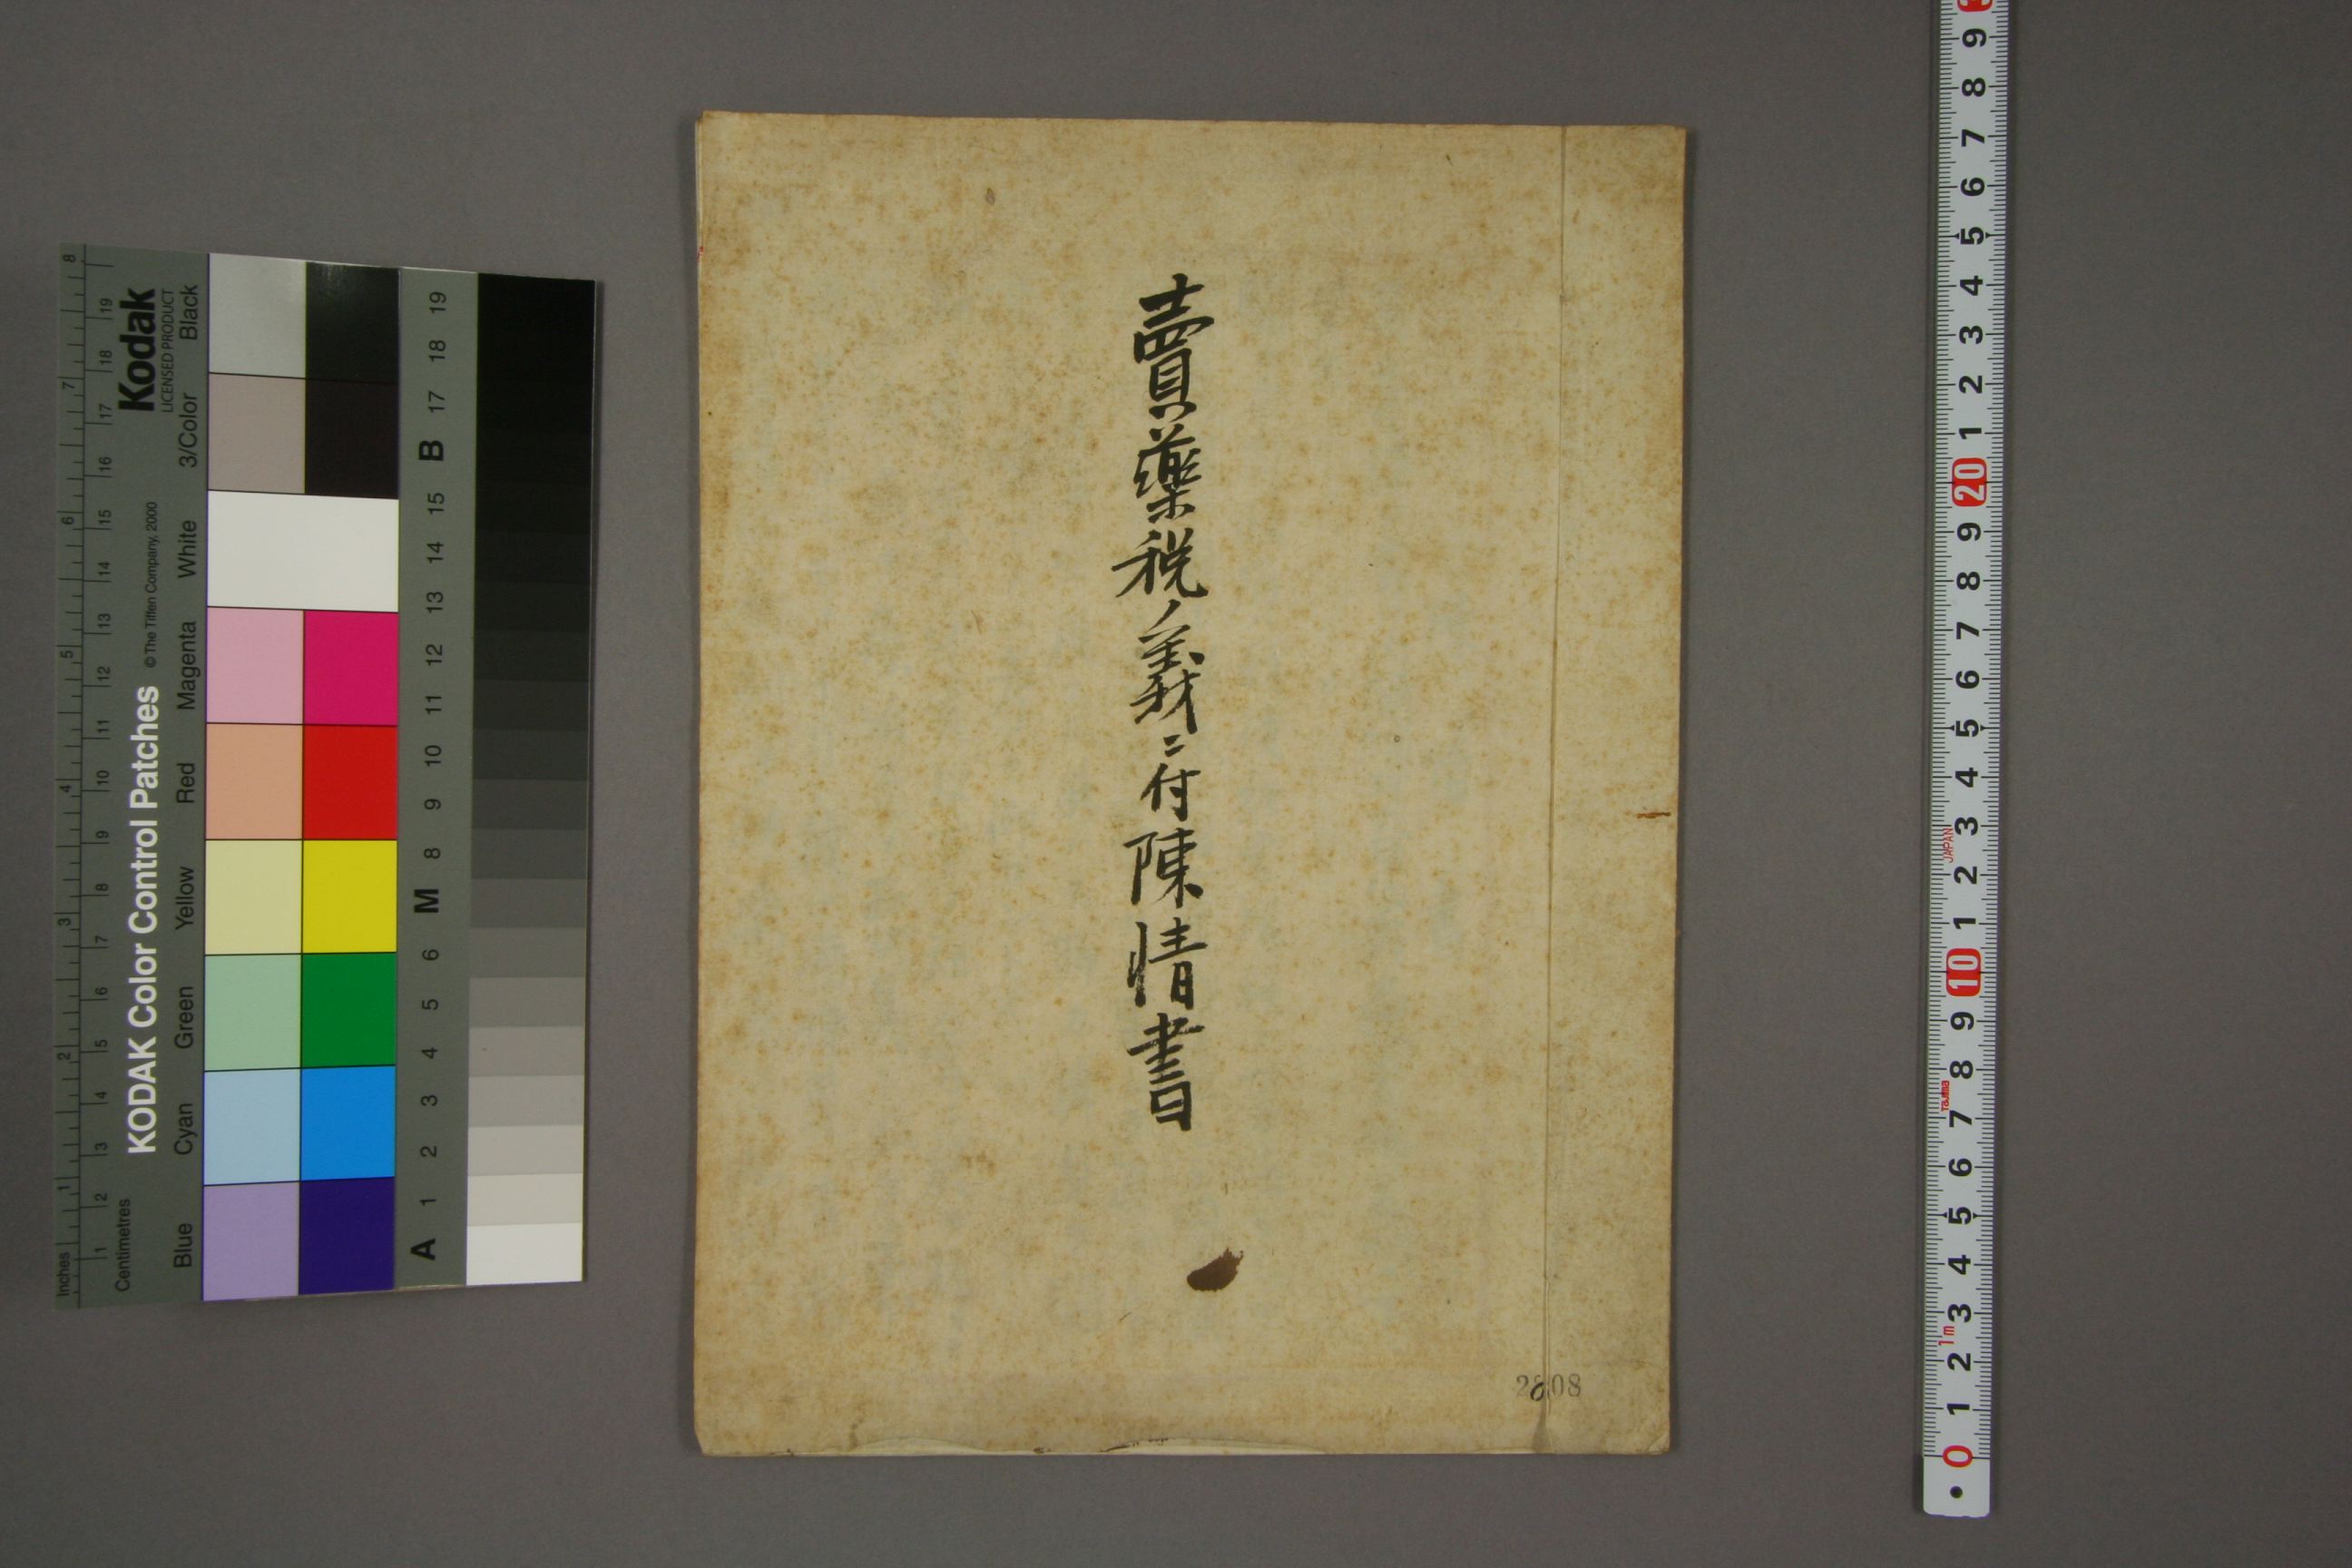 賣藥税ノ義ニ付陳情書
2808
KODAK Color Control Patches
© The Tiffen Company, 2000
Kodak
LICENSED PRODUCT
Inches
1 2 3 4 5 6 7 8
Centimetres
1 2 3 4 5 6 7 8 9 10 11 12 13 14 15 16 17 18 19
Blue Cyan Green Yellow Red Magenta White 3/Color Black
A 1 2 3 4 5 6 M 8 9 10 11 12 13 14 15 B 17 18 19
0 1 2 3 4 5 6 7 8 9 10 1 2 3 4 5 6 7 8 9 20 1 2 3 4 5 6 7 8 9
1m
Tajima
JAPAN